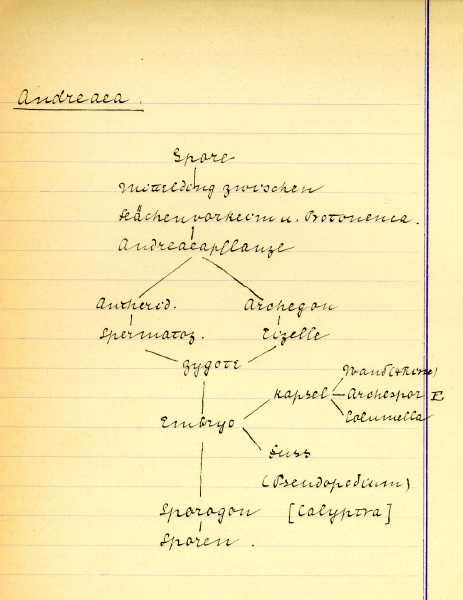 Andreaea.
Spore
Mittelding zwischen
Flächenvorkeim u. Protonema.
Andreaeapflanze
Antherid. Archegon
Spermatoz. Eizelle
Zygote
Wand (+ Rinne)
Kapsel Archespor E
Columella
Embryo
Fuss
(Pseudopodium)
Sporogon [Calyptra]
Sporen.